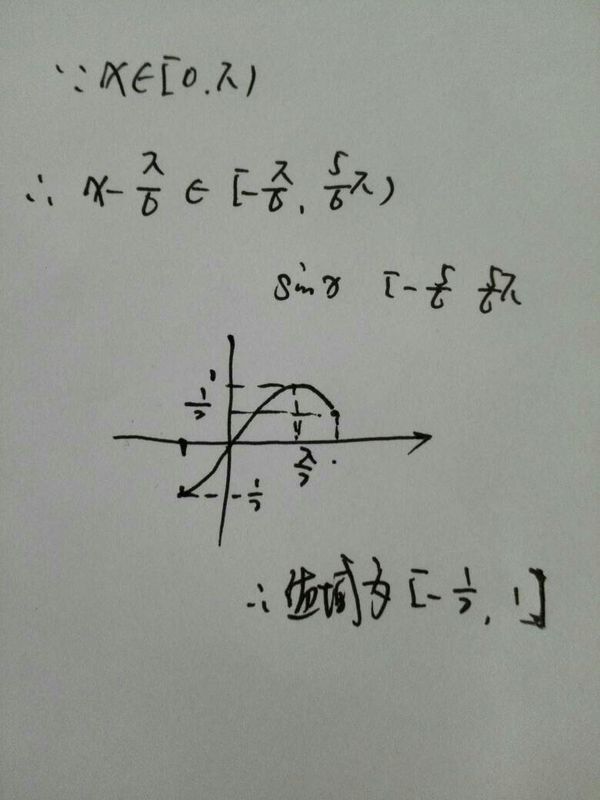 ∵ x∈[0.π)
∴ x-π/6 ∈ [-π/6, 5/6π)
sin x [-5/6 5/6π
1
1/2
π/2
-1/2
∴值域为[-1/2, 1]